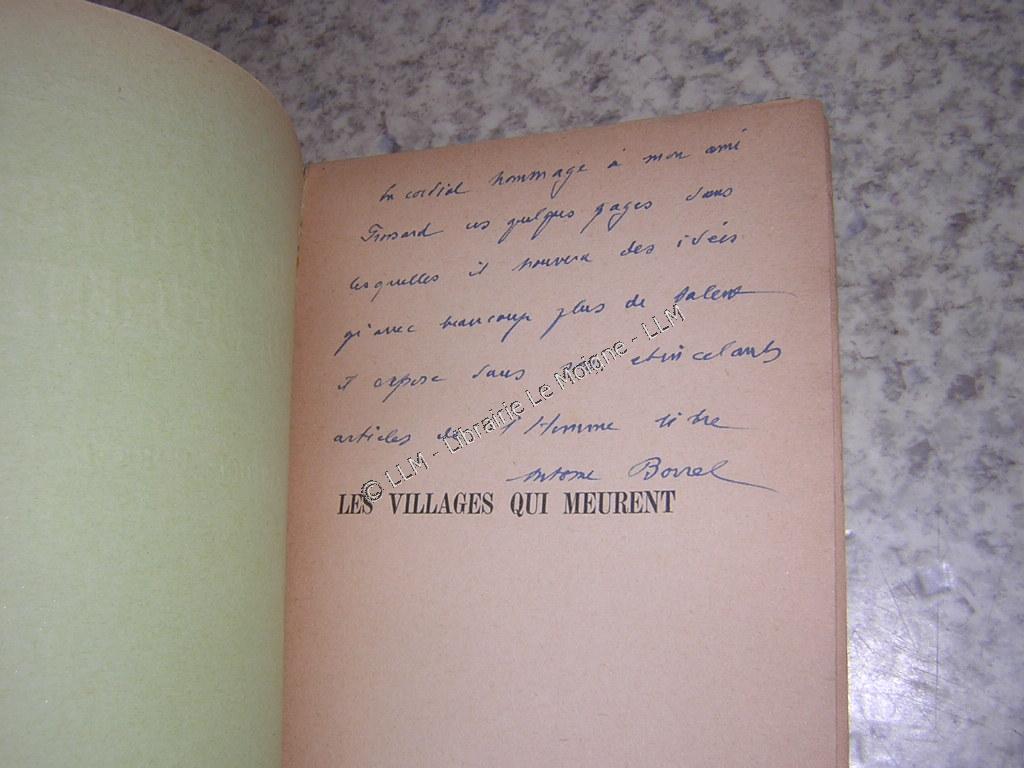 En cordial hommage à mon ami
Frossard ces quelques pages dans
lesquelles il trouvera des idées
qu'avec beaucoup plus de talent
il expose dans ses etincelants
articles de l'Homme libre
Antoine Borrel
LES VILLAGES QUI MEURENT
© LLM - Librairie Le Moigne - LLM